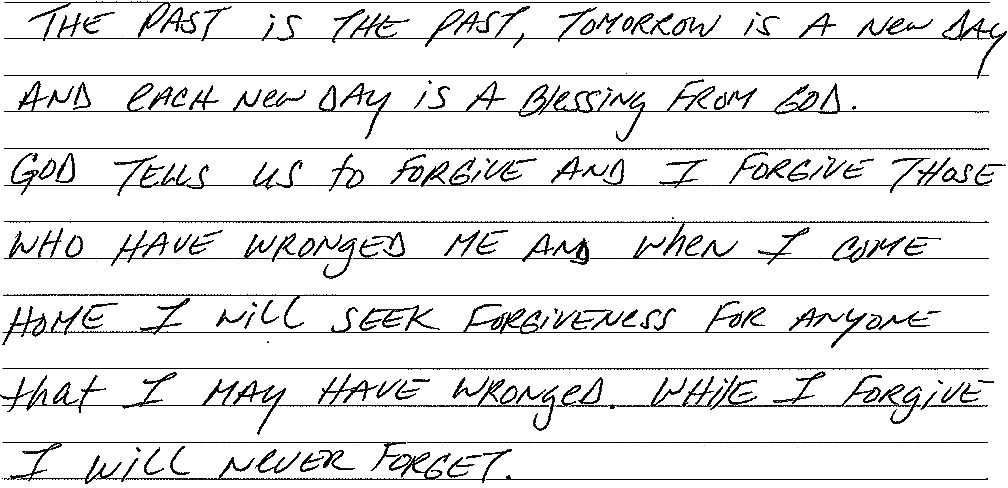 THE PAST is THE PAST, TOMORROW is A NEW DAY
AND EACH NEW DAY is A BlEssiNg FROM GOD.
GOD TELLS US to FORGIVE AND I FORGIVE THOSE
WHO HAVE WRONgED ME AND WhEN I COME
HOME I WiLL SEEK FORGIVENESS FOR ANYONE
that I MAY HAVE WRONgED. WHilE I FORgIVE
I WiLL NEVER FORGET.